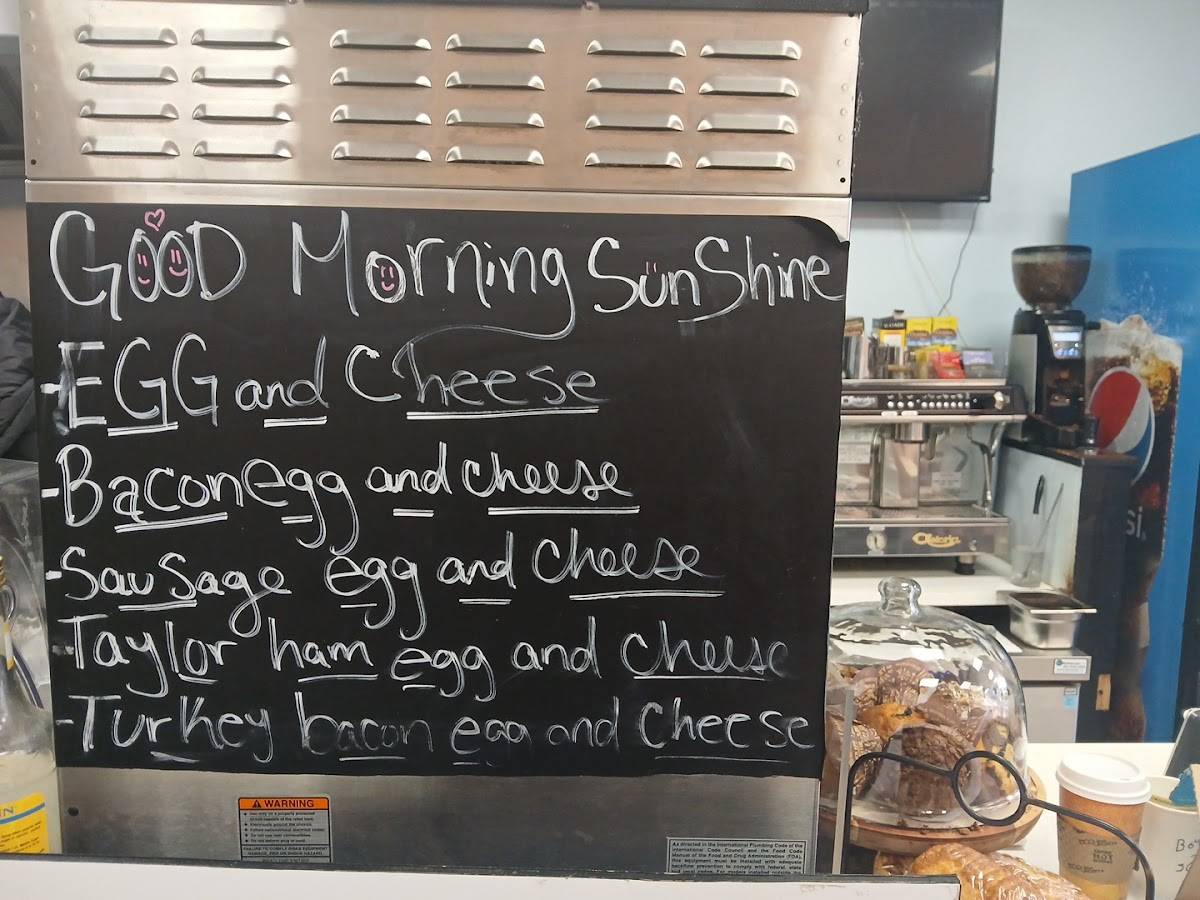 GOOD Morning SunShine
-EGG and Cheese
-Bacon egg and cheese
-Sausage egg and cheese
-Taylor ham egg and cheese
-Turkey bacon egg and cheese
WARNING
As described in the International Plumbing Code of the
International Code Council and the Food Code
Manual of the Food and Drug Administration (FDA),
this equipment must be installed with adequate
backflow prevention to comply with federal, state
Astoria
si.
HOT